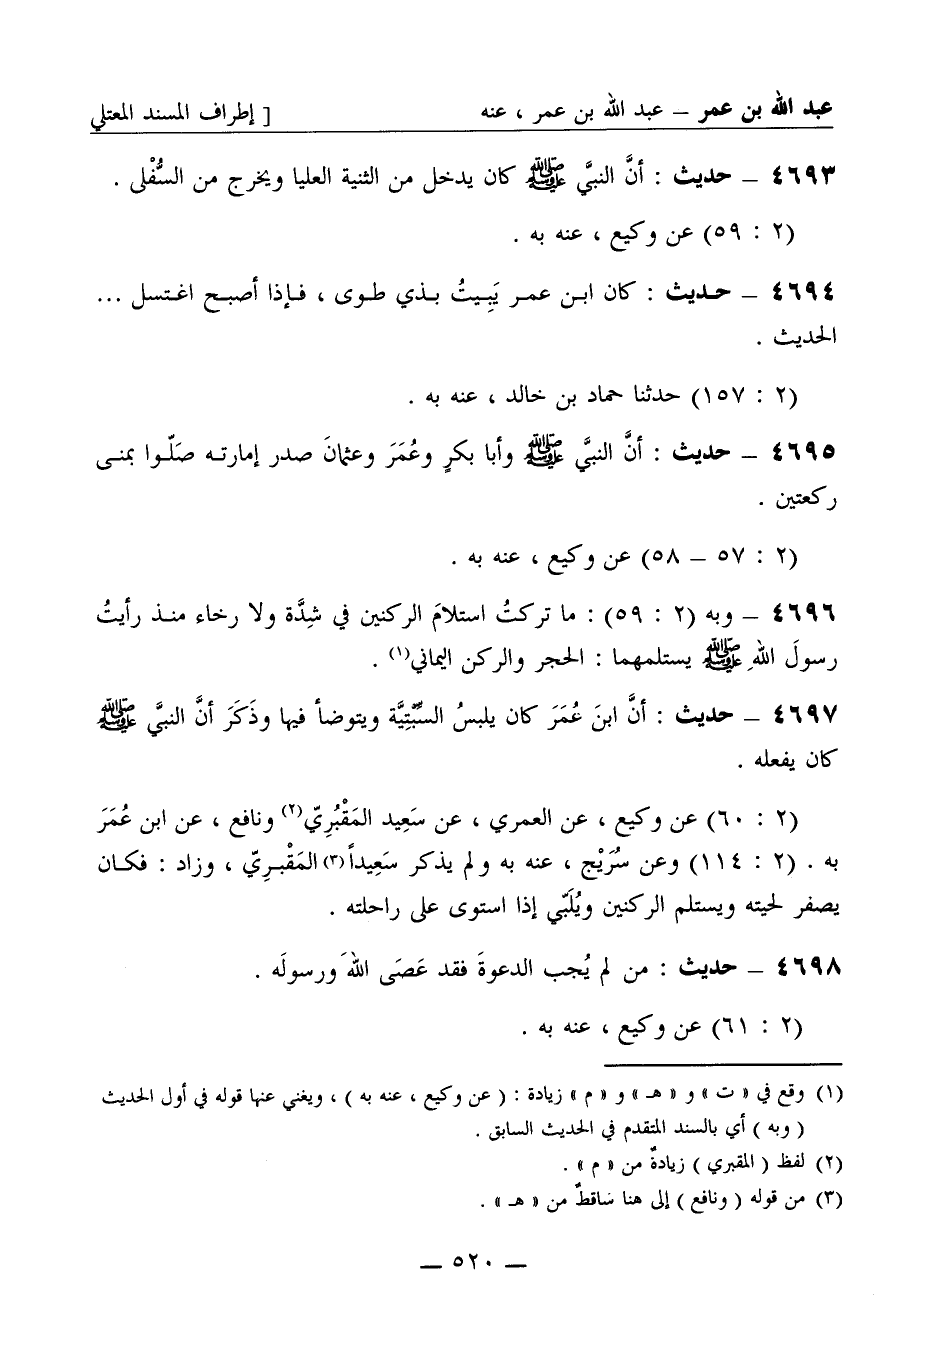 عبد الله بن عمر – عبد الله بن عمر ، عنه [ إطراف المسند المعتلي
٤٦٩٣ – حديث : أنَّ النبيَّ ﷺ كان يدخل من الثنية العليا ويخرج من السُّفْلى .
(٢ : ٥٩) عن وكيع ، عنه به .
٤٦٩٤ – حديث : كان ابن عمر يَبِيتُ بذي طوى ، فإذا أصبح اغتسل ...
الحديث .
(٢ : ١٥٧) حدثنا حماد بن خالد ، عنه به .
٤٦٩٥ – حديث : أنَّ النبيَّ ﷺ وأبا بكرٍ وعُمَرَ وعثمانَ صدر إمارته صَلّوا بمنى
ركعتين .
(٢ : ٥٧ – ٥٨) عن وكيع ، عنه به .
٤٦٩٦ – وبه (٢ : ٥٩) : ما تركتُ استلامَ الركنين في شِدَّة ولا رخاء منذ رأيتُ
رسولَ اللهِ ﷺ يستلمهما : الحجر والركن اليماني(١) .
٤٦٩٧ – حديث : أنَّ ابنَ عُمَرَ كان يلبسُ السِّبْتِيَّة ويتوضأ فيها وذَكَرَ أنَّ النبيَّ ﷺ
كان يفعله .
(٢ : ٦٠) عن وكيع ، عن العمري ، عن سَعِيد المَقْبُرِيّ(٢) ونافع ، عن ابن عُمَرَ
به . (٢ : ١١٤) وعن سُرَيْج ، عنه به ولم يذكر سَعِيداً(٣) المَقْبرِيّ ، وزاد : فكان
يصفر لحيته ويستلم الركنين ويُلَبّي إذا استوى على راحلته .
٤٦٩٨ – حديث : من لم يُجب الدعوةَ فقد عَصَى اللهَ ورسولَه .
(٢ : ٦١) عن وكيع ، عنه به .
(١) وقع في « ت » و « هـ » و « م » زيادة : ( عن وكيع ، عنه به ) ، ويغني عنها قوله في أول الحديث
( وبه ) أي بالسند المتقدم في الحديث السابق .
(٢) لفظ ( المقبري ) زيادةٌ من « م » .
(٣) من قوله ( ونافع ) إلى هنا سَاقطٌ من « هـ » .
– ٥٢٠ –